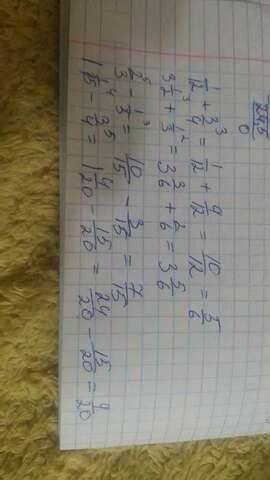 245
0
1/12 + 3/4 ³ = 1/12 + 9/12 = 10/12 = 5/6
3 1/2 ³ + 1/3 ² = 3 3/6 + 2/6 = 3 5/6
2/3 ⁵ - 1/5 ³ = 10/15 - 3/15 = 7/15
1 1/5 ⁴ - 3/4 ⁵ = 1 4/20 - 15/20 = 24/20 - 15/20 = 9/20